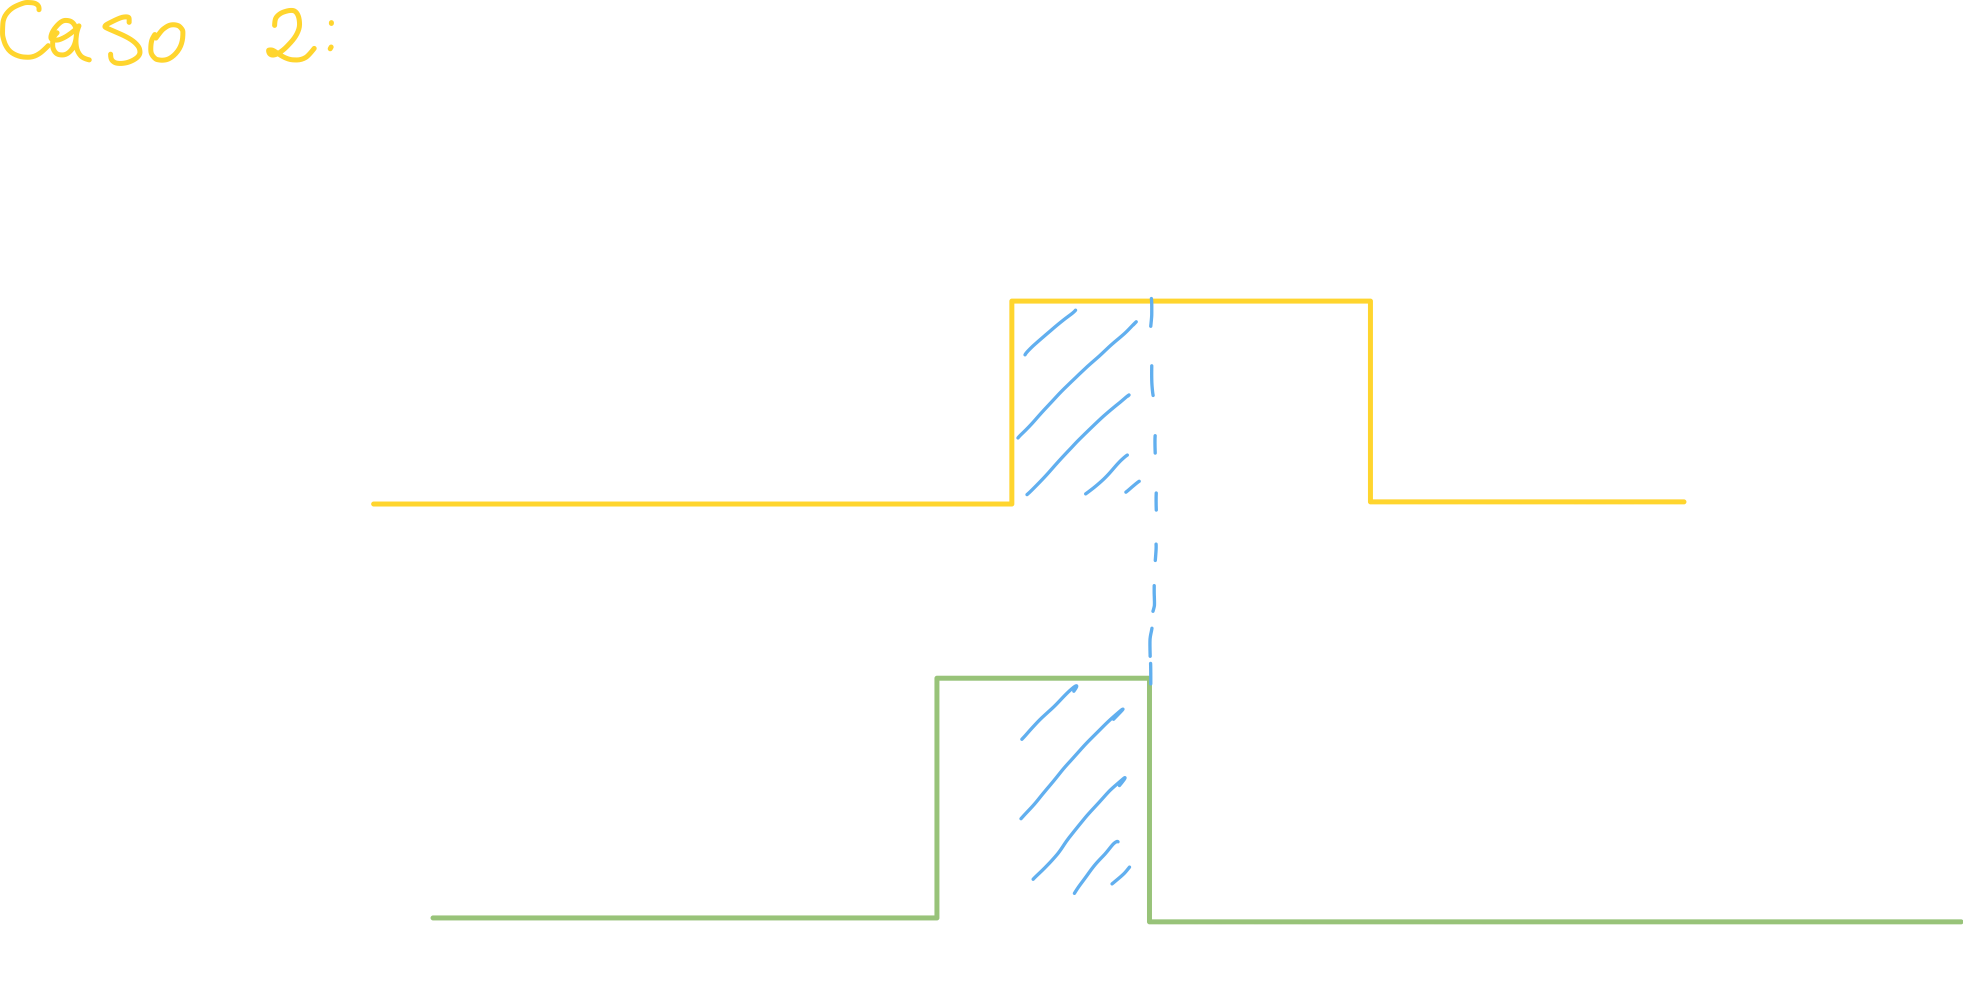 Caso 2: